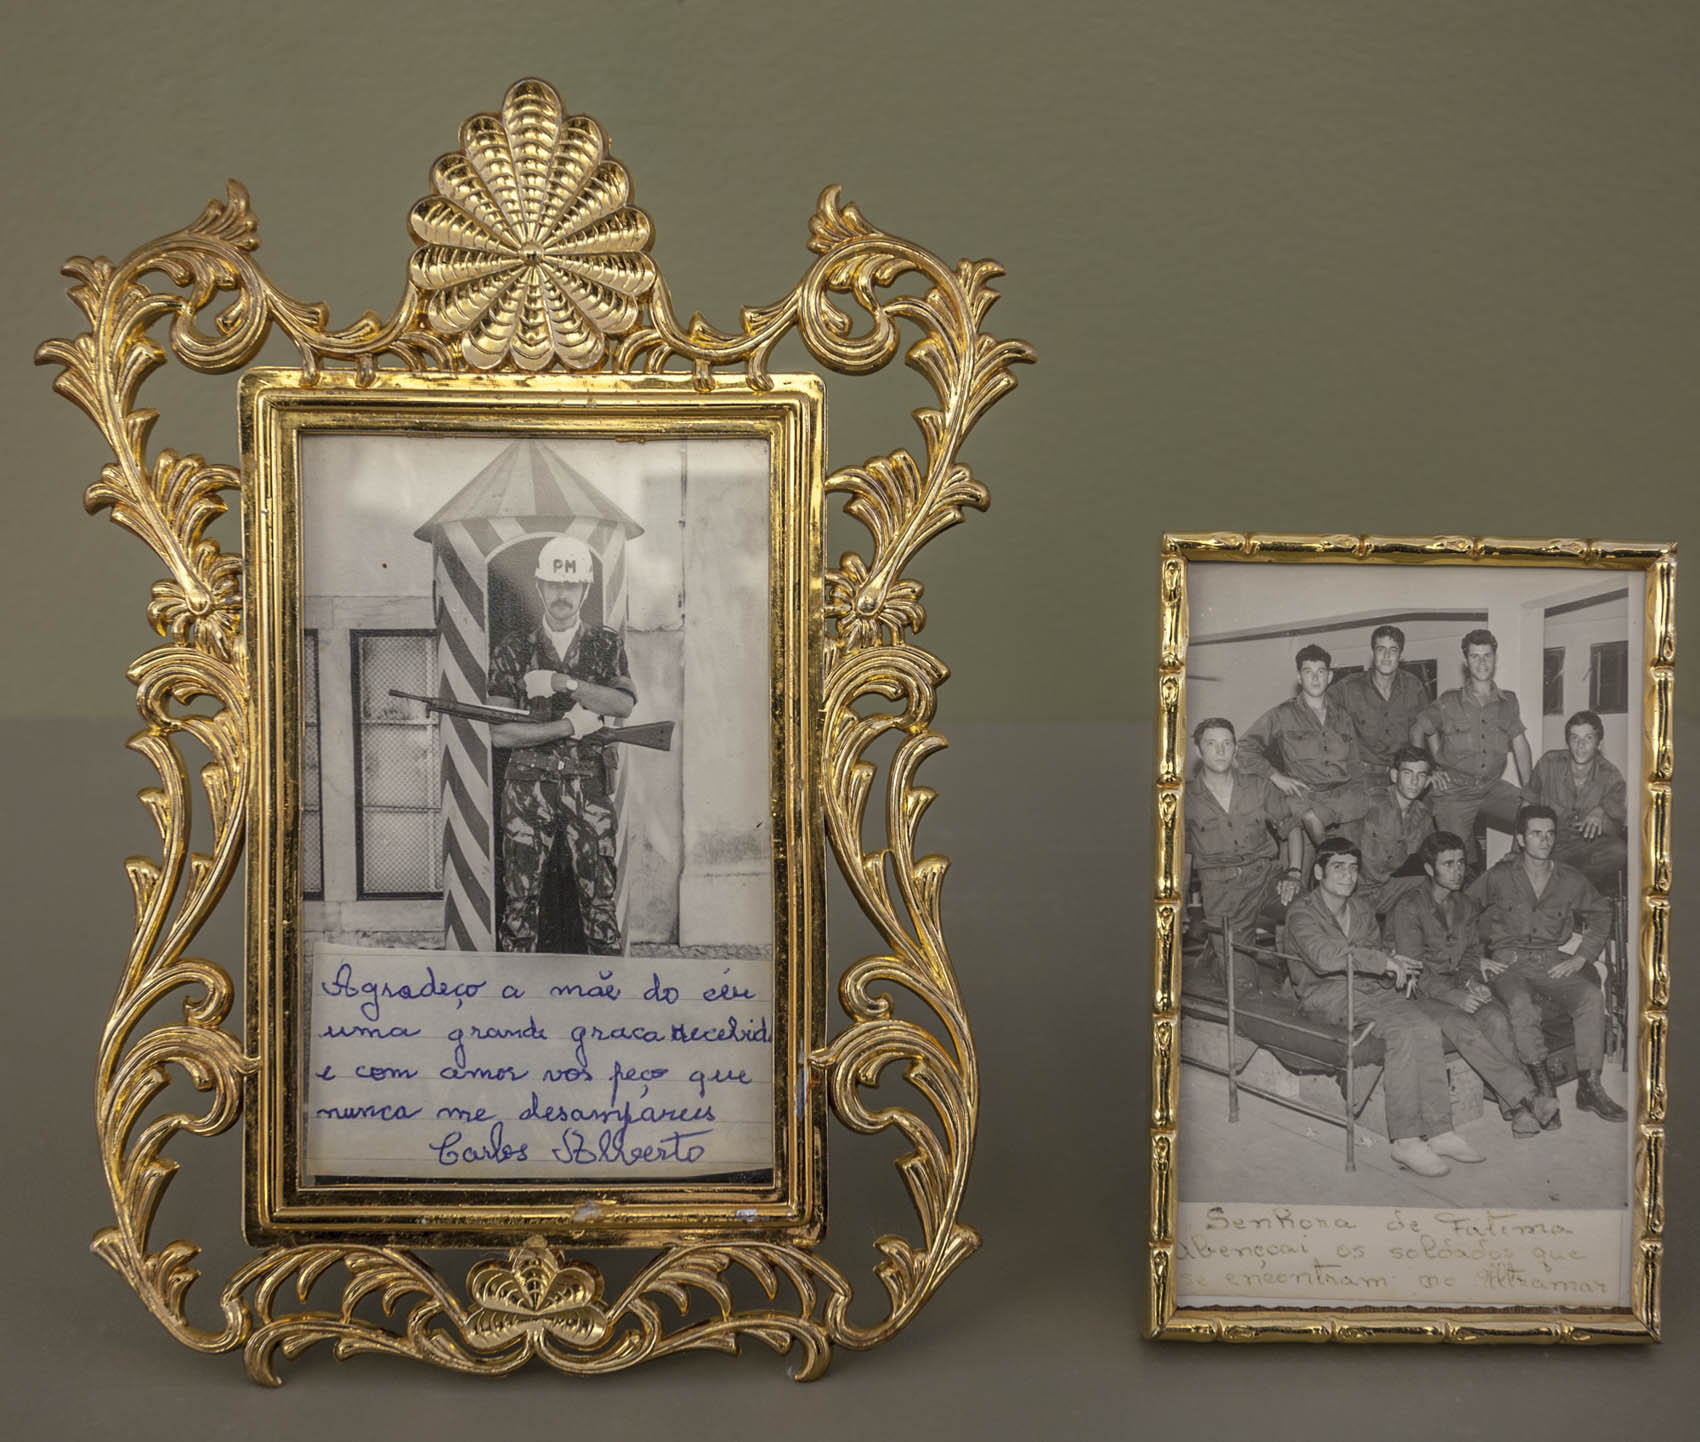 PM
Agradeço a mãe do céu
uma grande graca recebid
e com amor vos peço que
nunca me desampáreis
Carlos Alberto
Senhora de Fatima
Abençoai os soldados que
se encontram no Ultramar